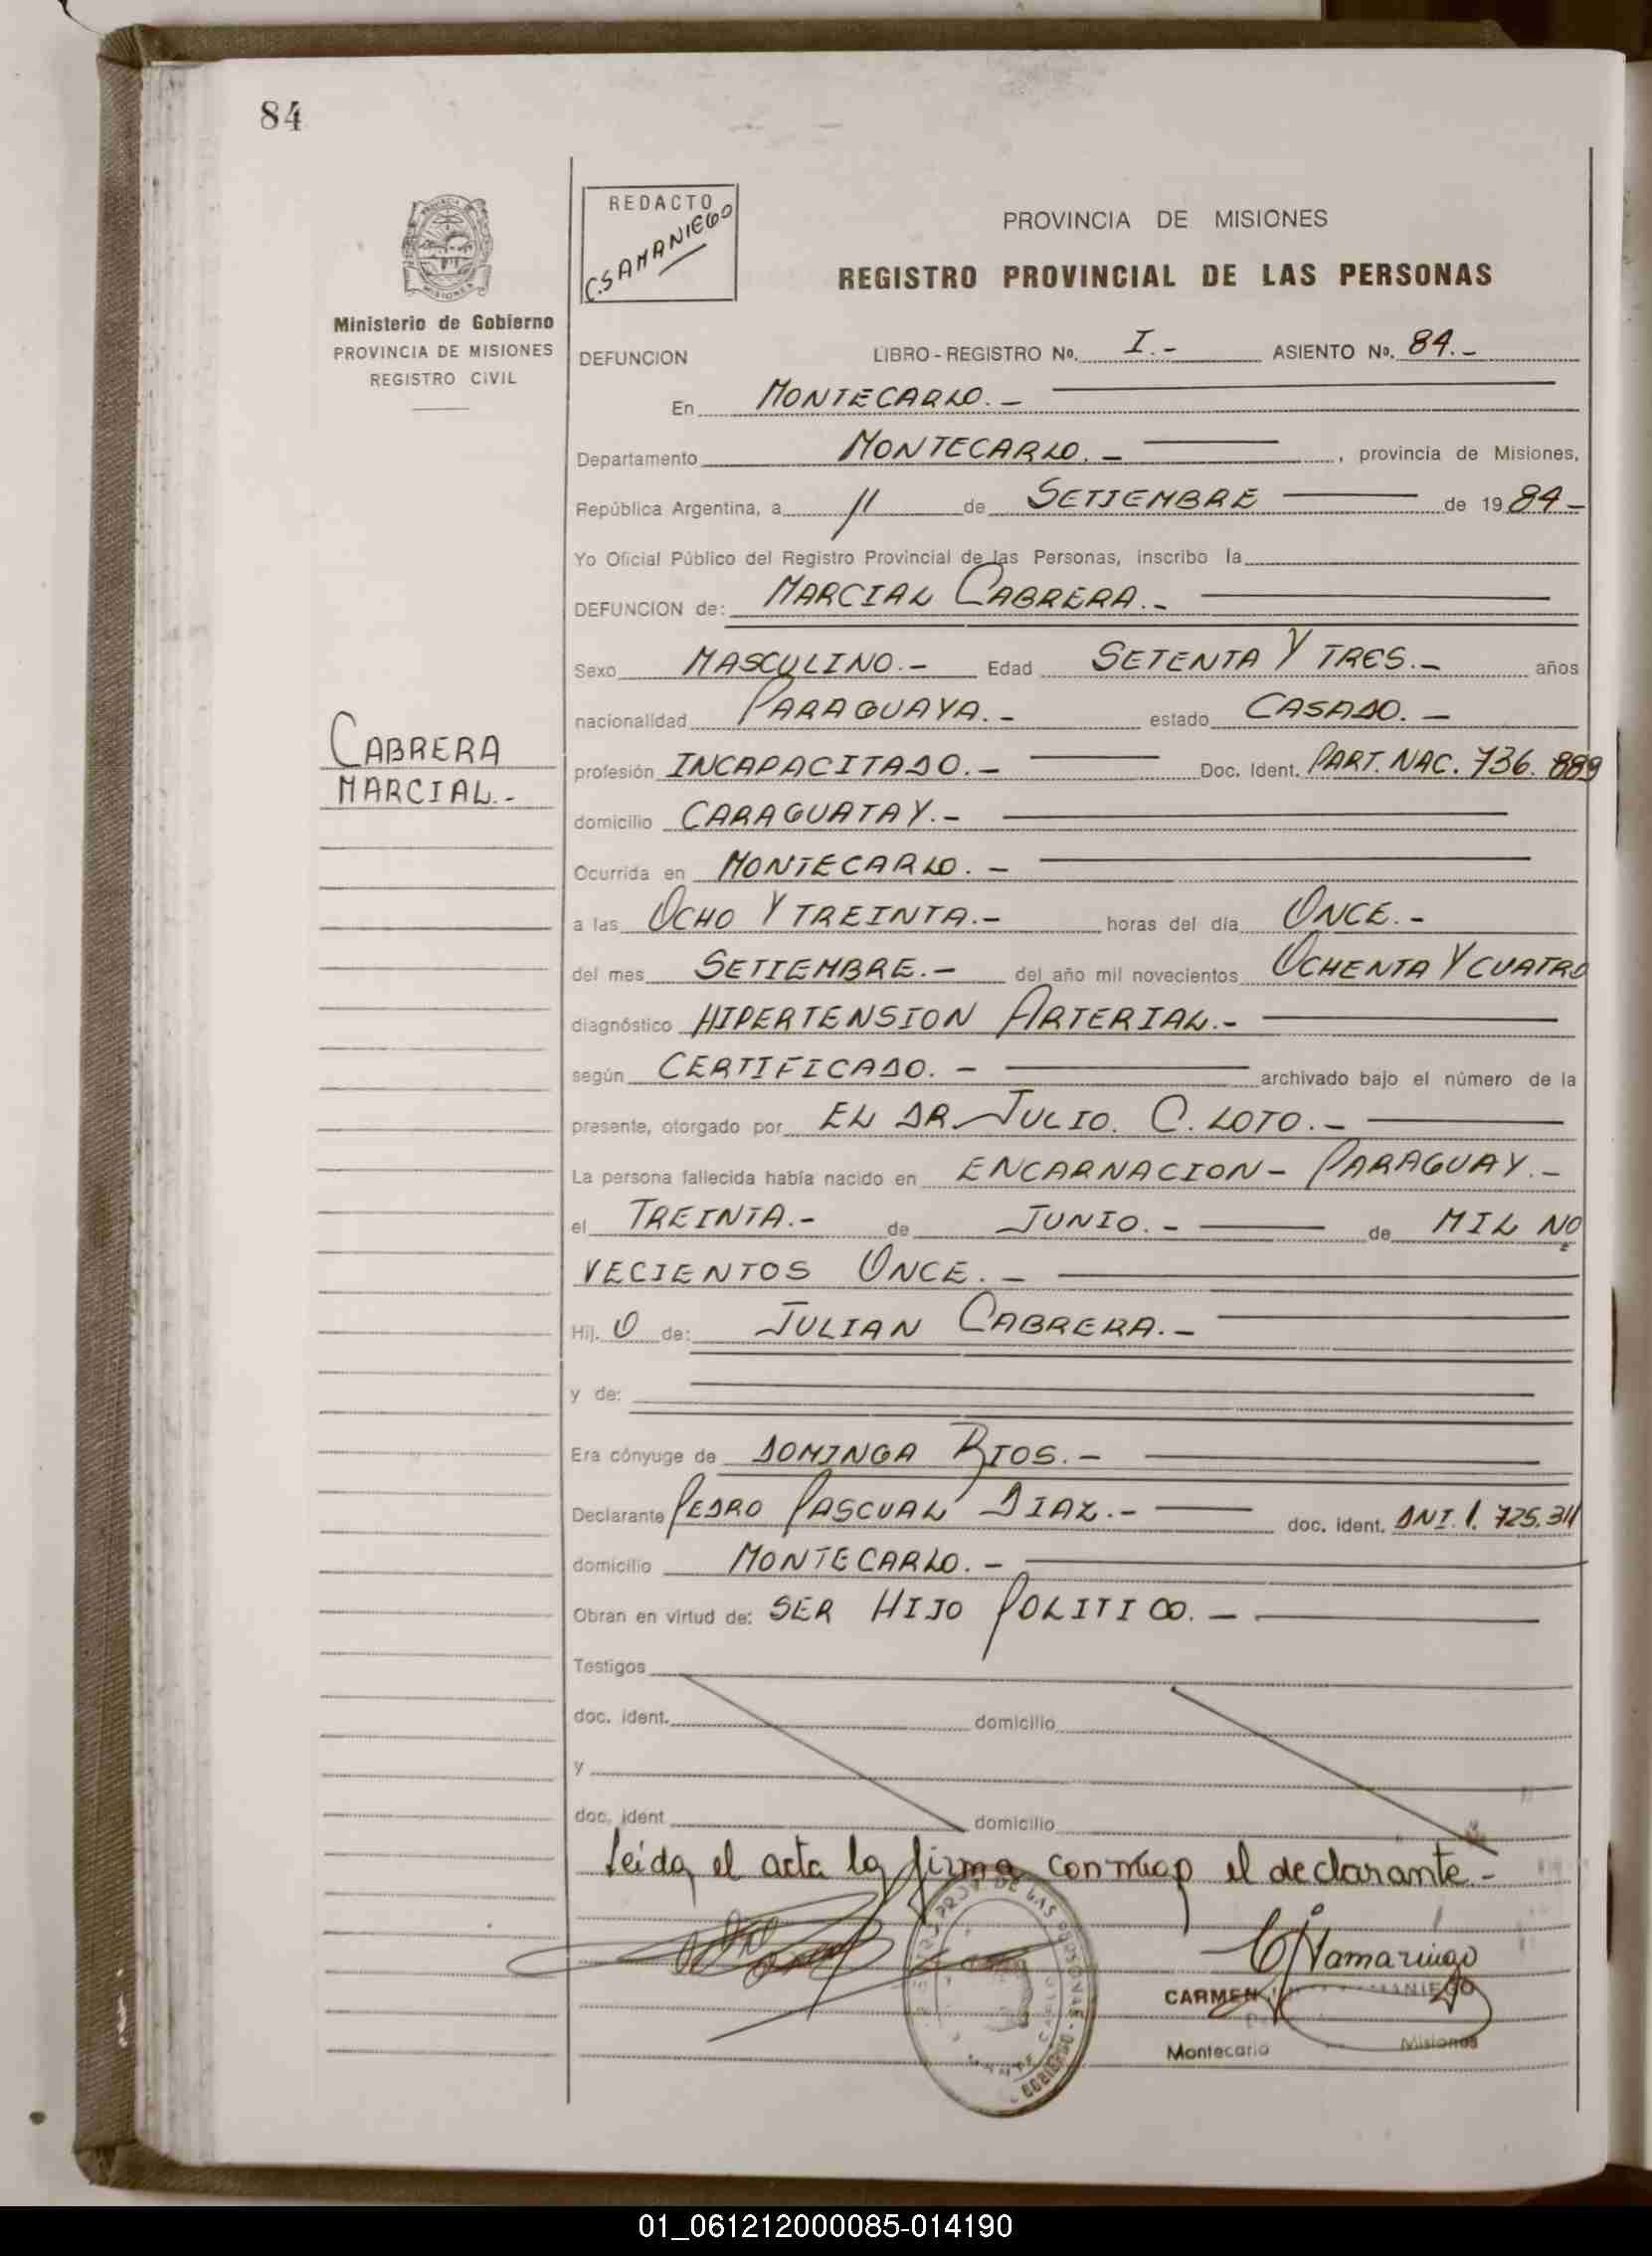 84
REDACTO
C. SAMANIEGO
PROVINCIA DE MISIONES
REGISTRO PROVINCIAL DE LAS PERSONAS
Ministerio de Gobierno
PROVINCIA DE MISIONES
REGISTRO CIVIL
DEFUNCION LIBRO - REGISTRO No. I.- ASIENTO No. 84.-
En MONTECARLO.-
Departamento MONTECARLO.- , provincia de Misiones,
República Argentina, a 11 de SETIEMBRE de 1984-
Yo Oficial Público del Registro Provincial de las Personas, inscribo la
DEFUNCION de: MARCIAL CABRERA.-
Sexo MASCULINO.- Edad SETENTA Y TRES.- años
nacionalidad PARAGUAYA.- estado CASADO.-
CABRERA
MARCIAL.-
profesión INCAPACITADO.- Doc. Ident. PART. NAC. 736.889
domicilio CARAGUATAY.-
Ocurrida en MONTECARLO.-
a las OCHO Y TREINTA.- horas del día ONCE.-
del mes SETIEMBRE.- del año mil novecientos OCHENTA Y CUATRO
diagnóstico HIPERTENSION ARTERIAL.-
según CERTIFICADO.- archivado bajo el número de la
presente, otorgado por EL DR. JULIO. C. LOTO.-
La persona fallecida había nacido en ENCARNACION- PARAGUAY.-
el TREINTA.- de JUNIO.- de MIL NO
VECIENTOS ONCE.-
Hij. O de: JULIAN CABRERA.-
y de:
Era cónyuge de DOMINGA RIOS.-
Declarante PEDRO PASCUAL DIAZ.- doc. ident. DNI. 1.725.311
domicilio MONTECARLO.-
Obran en virtud de: SER HIJO POLITICO.-
Testigos
doc. ident. domicilio
y
doc. ident domicilio
Leida el acta la firma conmigo el declarante.-
CSamaniego
CARMEN SAMANIEGO
Montecarlo Misiones
01_061212000085-014190